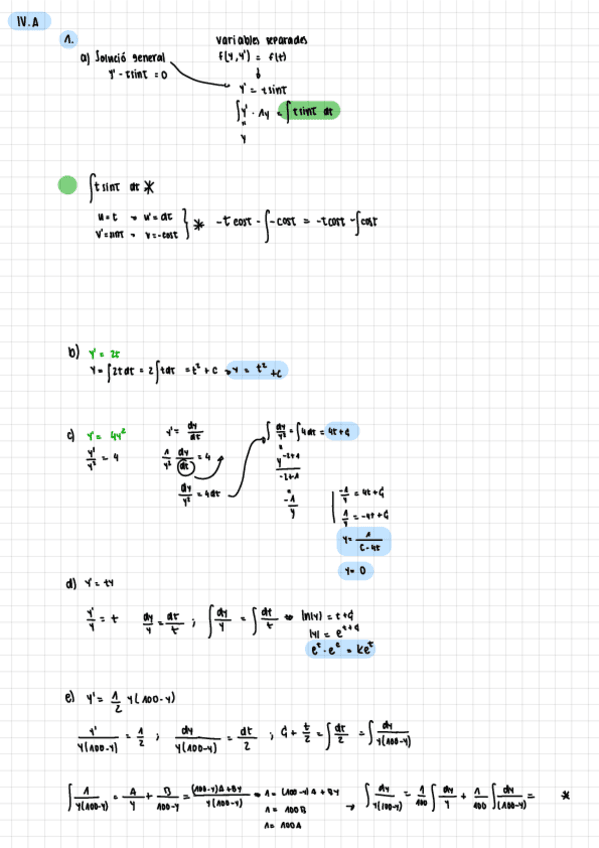 IV.A
1.
a) Solució general
y' - tsint = 0
variables separades
f(y,y') = f(t)
y' = tsint
∫y' · 1y = ∫tsint dt
y
∫tsint dt *
u=t → u'=dt
v'=sint → v=-cost } * -tcost - ∫-cost = -tcost -∫cost
b) y' = 2t
y = ∫2tdt = 2∫tdt = t² + c → y = t² + c
c) y' = 4y²
y'/y² = 4
y' = dy/dt
1/y² dy/dt = 4
dy/y² = 4dt
∫dy/y² = ∫4dt = 4t+C
y^-2+1/-2+1
-1/y
-1/y = 4t+C
1/y = -4t+C
y = 1/C-4t
y = 0
d) y' = ty
y'/y = t dy/y = dt/t ; ∫dy/y = ∫dt/t ⇔ ln|y| = t+C
|y| = e^t+C
e^t · e^c = ke^t
e) y' = 1/2 y(100-y)
y'/y(100-y) = 1/2 ; dy/y(100-y) = dt/2 ; C + t/2 = ∫dt/2 = ∫dy/y(100-y)
∫1/y(100-y) = A/y + B/100-y = (100-y)A+By/y(100-y) → 1 = (100-y)A + By → ∫dy/y(100-y) = 1/100 ∫dy/y + 1/100 ∫dy/(100-y) = *
1 = 100B
1 = 100A